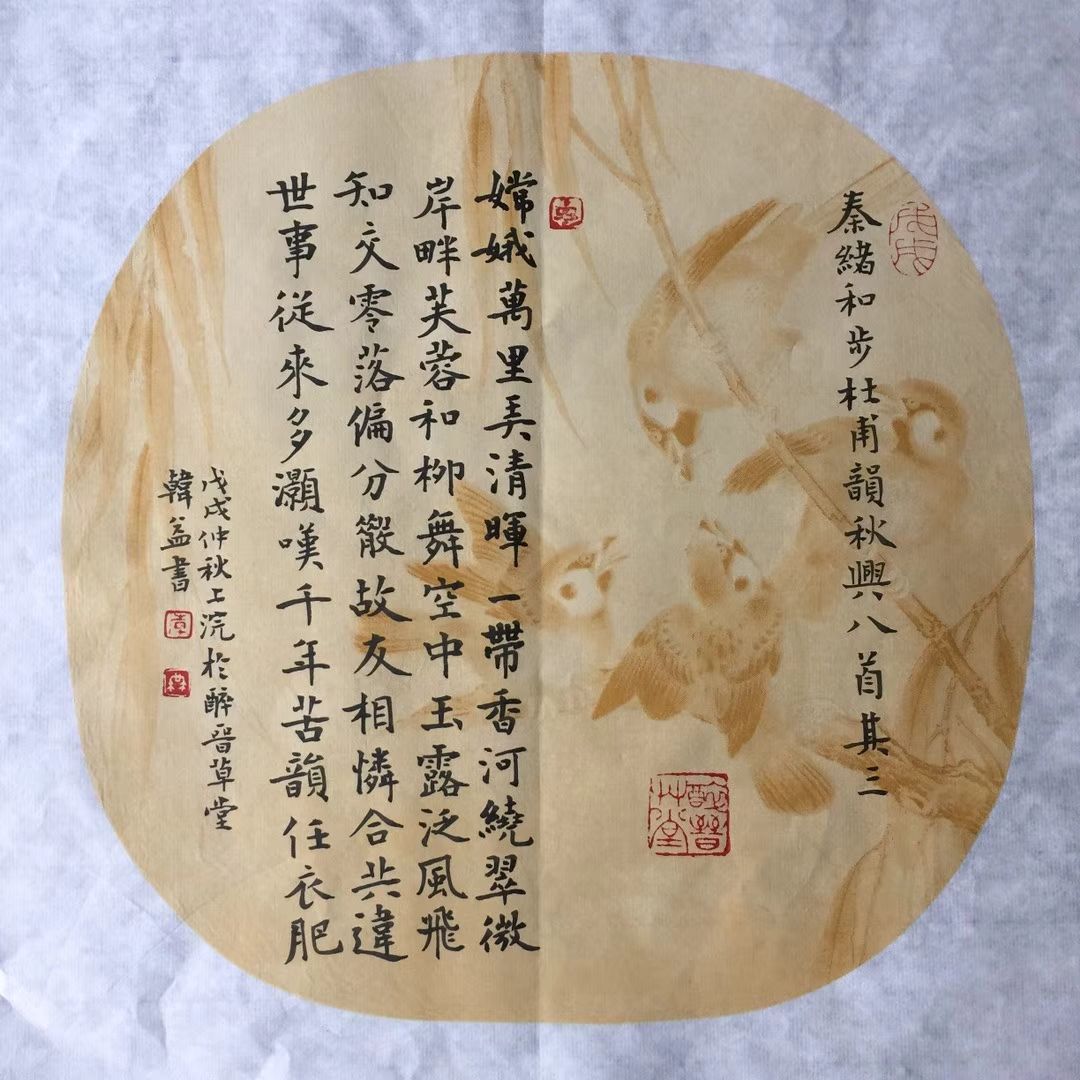 戊戌
秦緒和步杜甫韻秋興八首其三
嫦娥萬里弄清暉一帶香河繞翠微
岸畔芙蓉和柳舞空中玉露泛風飛
知交零落偏分散故友相憐合共違
世事從來多灝嘆千年苦韻任衣肥
戊戌仲秋上浣於醉晉草堂
韓益書
醉晉艸堂